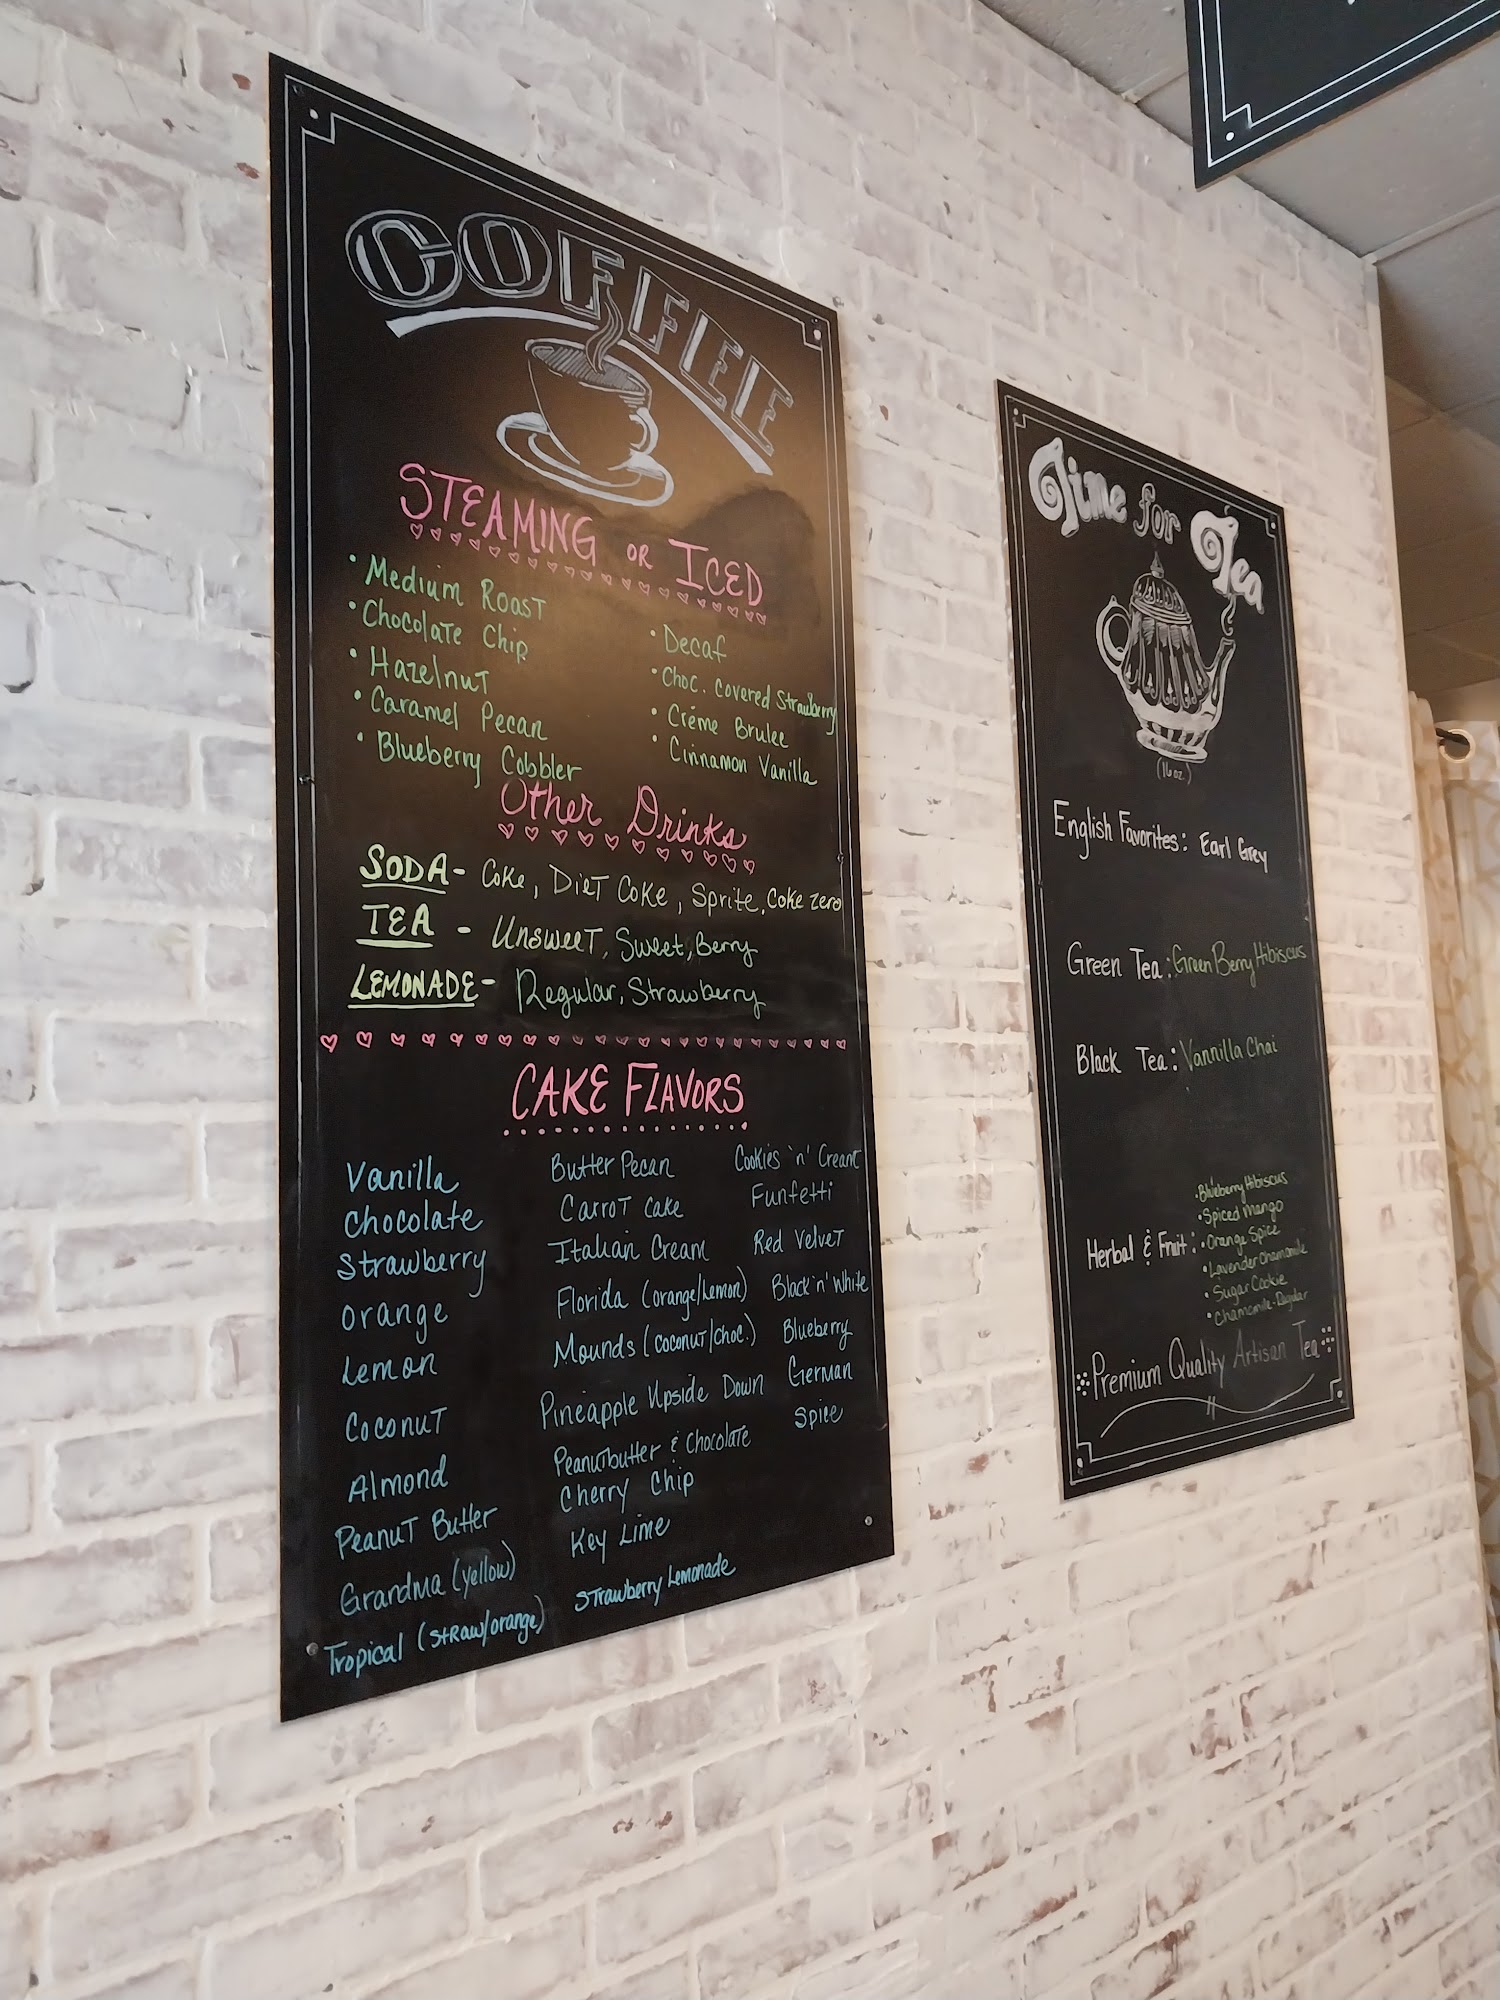 COFFEE
STEAMING OR ICED
• Medium Roast
• Chocolate Chip
• Hazelnut
• Caramel Pecan
• Blueberry Cobbler
• Decaf
• Choc. covered Strawberry
• Créme Brulee
• Cinnamon Vanilla
Other Drinks
SODA - Coke, Diet Coke, Sprite, Coke zero
TEA - Unsweet, Sweet, Berry
LEMONADE - Regular, Strawberry
CAKE FLAVORS
Vanilla
Chocolate
Strawberry
Orange
Lemon
Coconut
Almond
Peanut Butter
Grandma (yellow)
Tropical (straw/orange)
Butter Pecan
Carrot Cake
Italian Cream
Florida (orange/Lemon)
Mounds (coconut/choc.)
Pineapple Upside Down
Peanutbutter & Chocolate
Cherry Chip
Key Lime
Strawberry Lemonade
Cookies 'n' Cream
Funfetti
Red Velvet
Black 'n' White
Blueberry
German
Spice
Time for Tea
(16 oz.)
English Favorites: Earl Grey
Green Tea: Green Berry Hibiscus
Black Tea: Vannilla Chai
Herbal & Fruit:
• Blueberry Hibiscus
• Spiced Mango
• Orange Spice
• Lavender Chamomile
• Sugar Cookie
• Chamomile-Regular
Premium Quality Artisan Tea